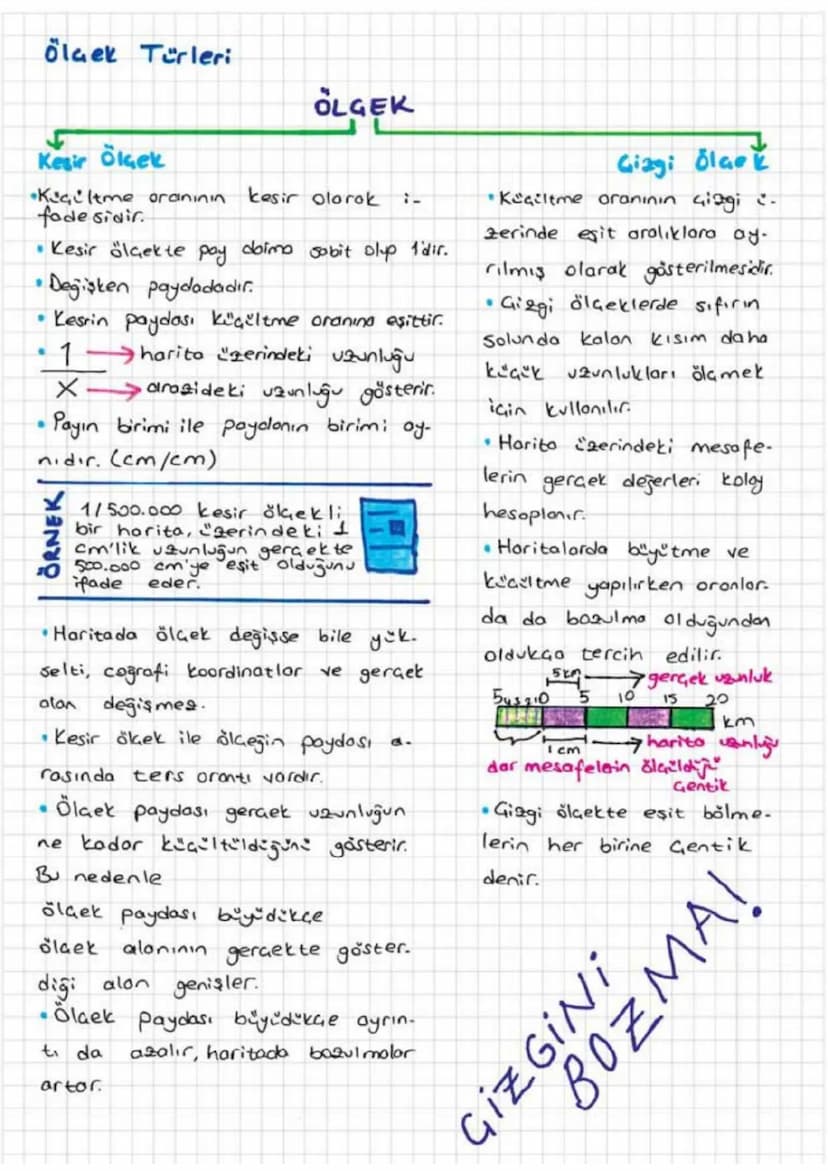 Ölçek Türleri
ÖLÇEK
Kesir Ölçek
•Küçültme oranının kesir olarak i-
fadesidir.
• Kesir ölçekte pay daima sabit olup 1'dir.
• Değişken paydadadır.
• Kesrin paydası küçültme oranına eşittir.
• 1 → harita üzerindeki uzunluğu
X → arazideki uzunluğu gösterir.
• Payın birimi ile paydanın birimi ay-
nıdır. (cm/cm)
ÖRNEK
1/500.000 kesir ölçekli
bir harita, üzerindeki 1
cm'lik uzunluğun gerçekte
500.000 cm'ye eşit olduğunu
ifade eder.
• Haritada ölçek değişse bile yük-
selti, coğrafi koordinatlar ve gerçek
alan değişmez.
• Kesir ölçek ile ölçeğin paydası a-
rasında ters orantı vardır.
• Ölçek paydası gerçek uzunluğun
ne kadar küçültüldüğünü gösterir.
Bu nedenle
ölçek paydası büyüdükçe
ölçek alanının gerçekte göster-
diği alan genişler.
• Ölçek paydası büyüdükçe ayrın-
tı da azalır, haritada bozulmalar
artar.
Çizgi Ölçek
• Küçültme oranının çizgi ü-
zerinde eşit aralıklara ay-
rılmış olarak gösterilmesidir.
• Çizgi ölçeklerde sıfırın
solunda kalan kısım daha
küçük uzunlukları ölçmek
için kullanılır.
• Harita üzerindeki mesafe-
lerin gerçek değerleri kolay
hesaplanır.
• Haritalarda büyütme ve
küçültme yapılırken oranlar-
da da bozulma olduğundan
oldukça tercih edilir.
5 km → gerçek uzunluk
543210 5 10 15 20
km
1 cm → harita uzunluğu
dar mesafelerin ölçüldüğü
çentik
• Çizgi ölçekte eşit bölme-
lerin her birine çentik
denir.
ÇİZGİNİ
BOZMA!